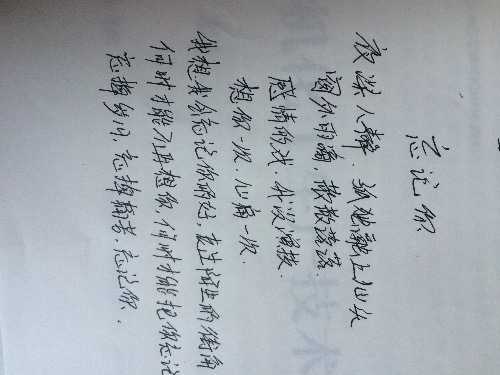 忘记你
夜深人静，孤独涌上心头
窗外雨滴，散散落落.
感情的戏，我没演技.
想你一次，心痛一次.
我想我会忘记你的好，走在陌生的街角
何时才能不再想你，何时才能把你忘记
忘掉岁月，忘掉痛苦，忘记你.
技术